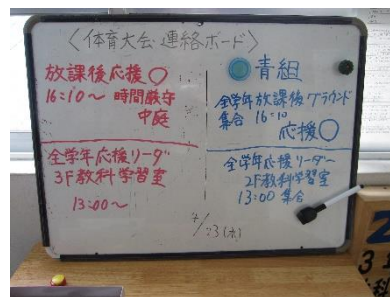 〈体育大会連絡ボード〉
放課後応援○
16:10～ 時間厳守
中庭
全学年応援リーダー
3F教科学習室
13:00～
青組
全学年放課後グラウンド
集合 16:10
応援○
全学年応援リーダー
2F教科学習室
13:00 集合
3